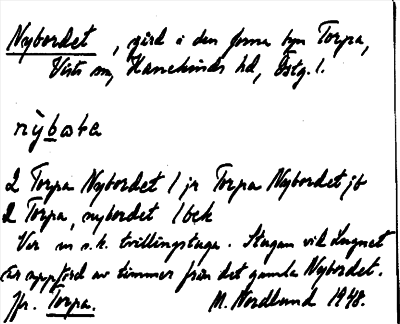 Nybordet, gård i den forna byn Torpa,
Västra , Hanekinds hd, Östg. l.
nỳbωta
2 Torpa Nybordet / jr Torpa Nybordet jb
2 Torpa, nybordet / bek
Var en s.k. tvillingstuga. Stugan vid Lugnet
är uppförd av timmer från det gamla Nybordet.
Jfr. Torpa. M. Nordlund 1948.